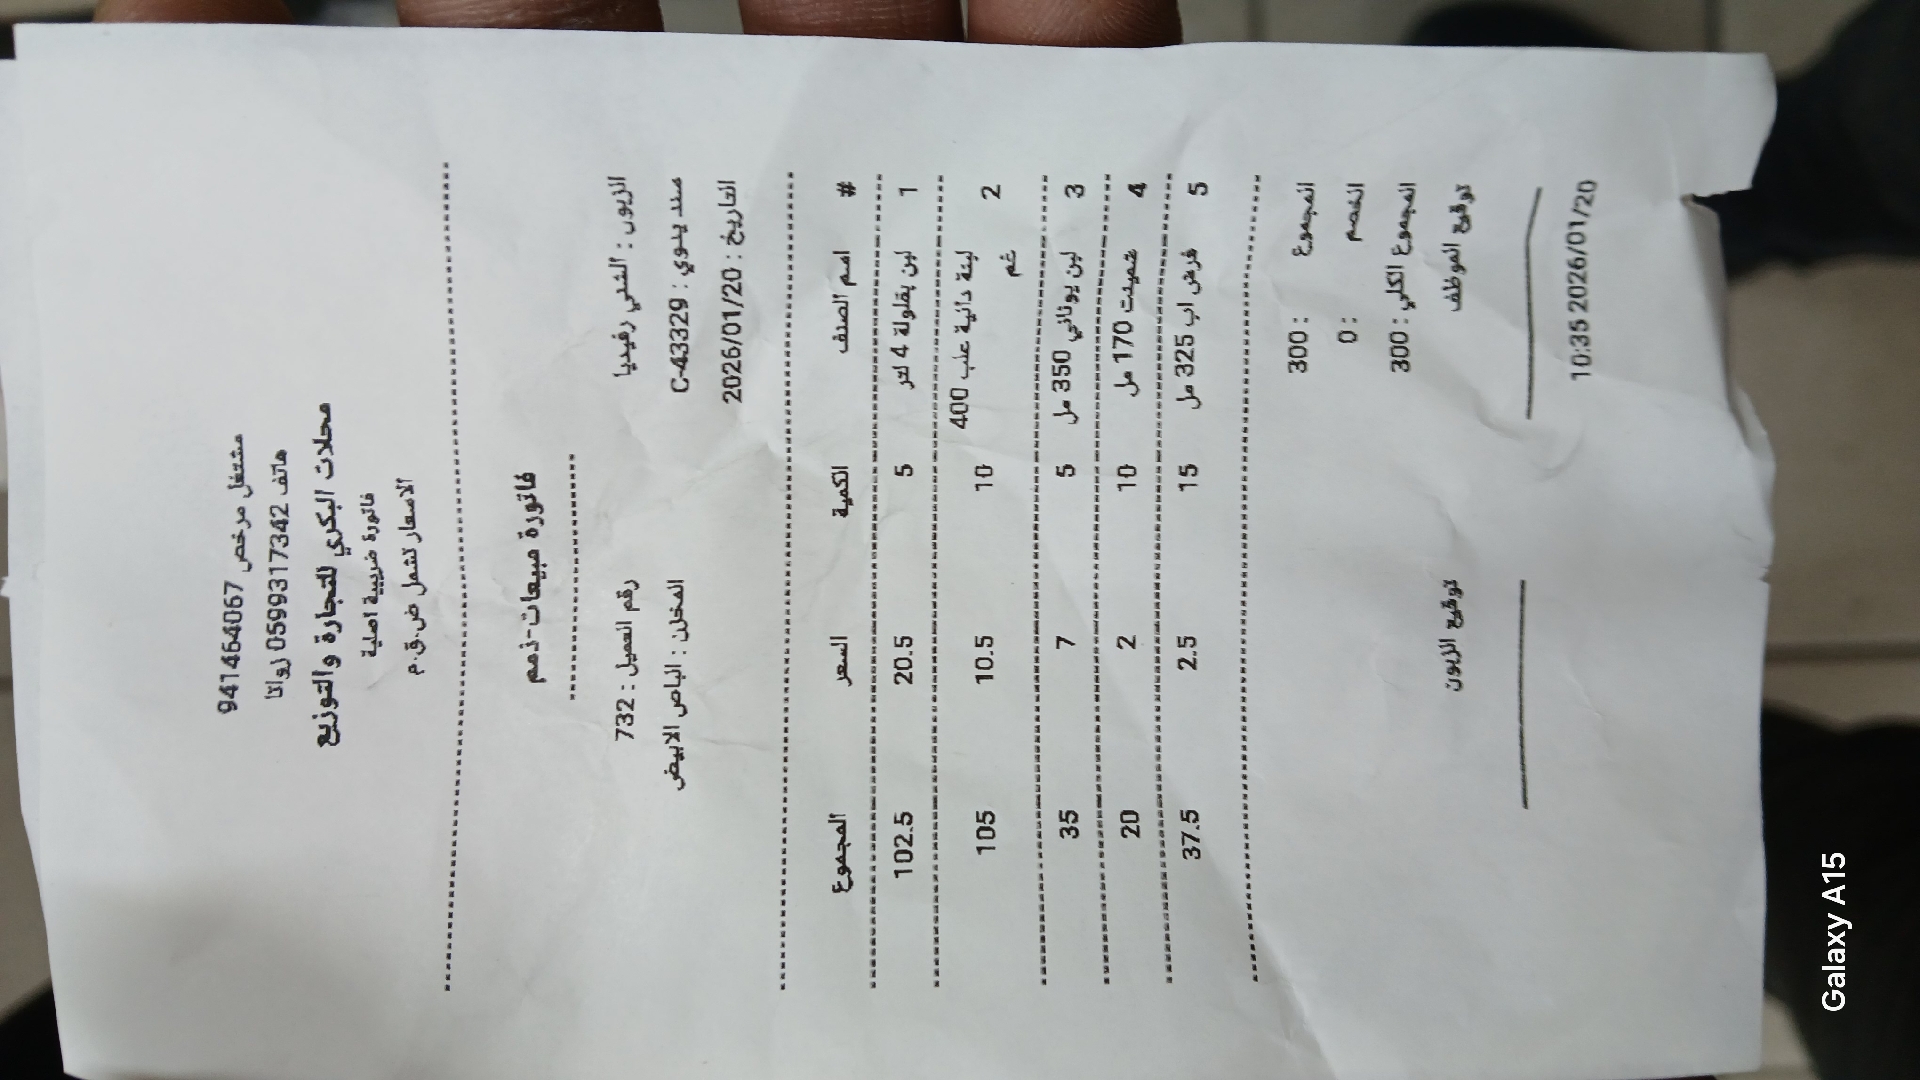 مشتغل مرخص 941464067
هاتف 0599317342 زواتا
محلات البكري للتجارة والتوزيع
فاتورة ضريبية اصلية
الاسعار تشمل ض.ق.م
فاتورة مبيعات-ذمم
الزبون : الشني رفيديا رقم العميل : 732
سند يدوي : C-43329 المخزن : الباص الابيض
التاريخ : 2026/01/20
# اسم الصنف الكمية السعر المجموع
1 لبن بقلولة 4 لتر 5 20.5 102.5
2 لبنة دانية علب 400 غم 10 10.5 105
3 لبن يوناني 350 مل 5 7 35
4 شمينت 170 مل 10 2 20
5 فرش اب 325 مل 15 2.5 37.5
المجموع : 300
الخصم : 0
المجموع الكلي : 300
توقيع الموظف توقيع الزبون
10:35 2026/01/20
Galaxy A15